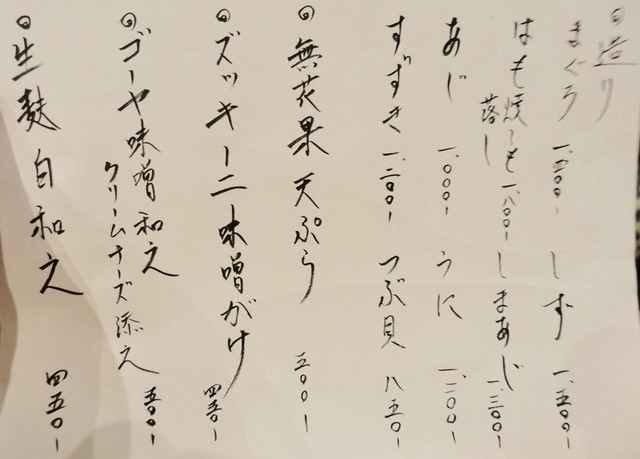 ◎造り
まぐろ しず 一、五〇〇ー
はも焼も 一、八〇〇ー しまあじ 一、三〇〇ー
落し
あじ 一、〇〇〇ー うに 一、二〇〇ー
すずき 一、二〇〇ー つぶ貝 八五〇ー
◎無花果天ぷら
◎ズッキーニ味噌がけ 四五〇ー
◎ゴーヤ味噌和え
クリームチーズ添え 五〇〇ー
◎生麩白和え 四五〇ー